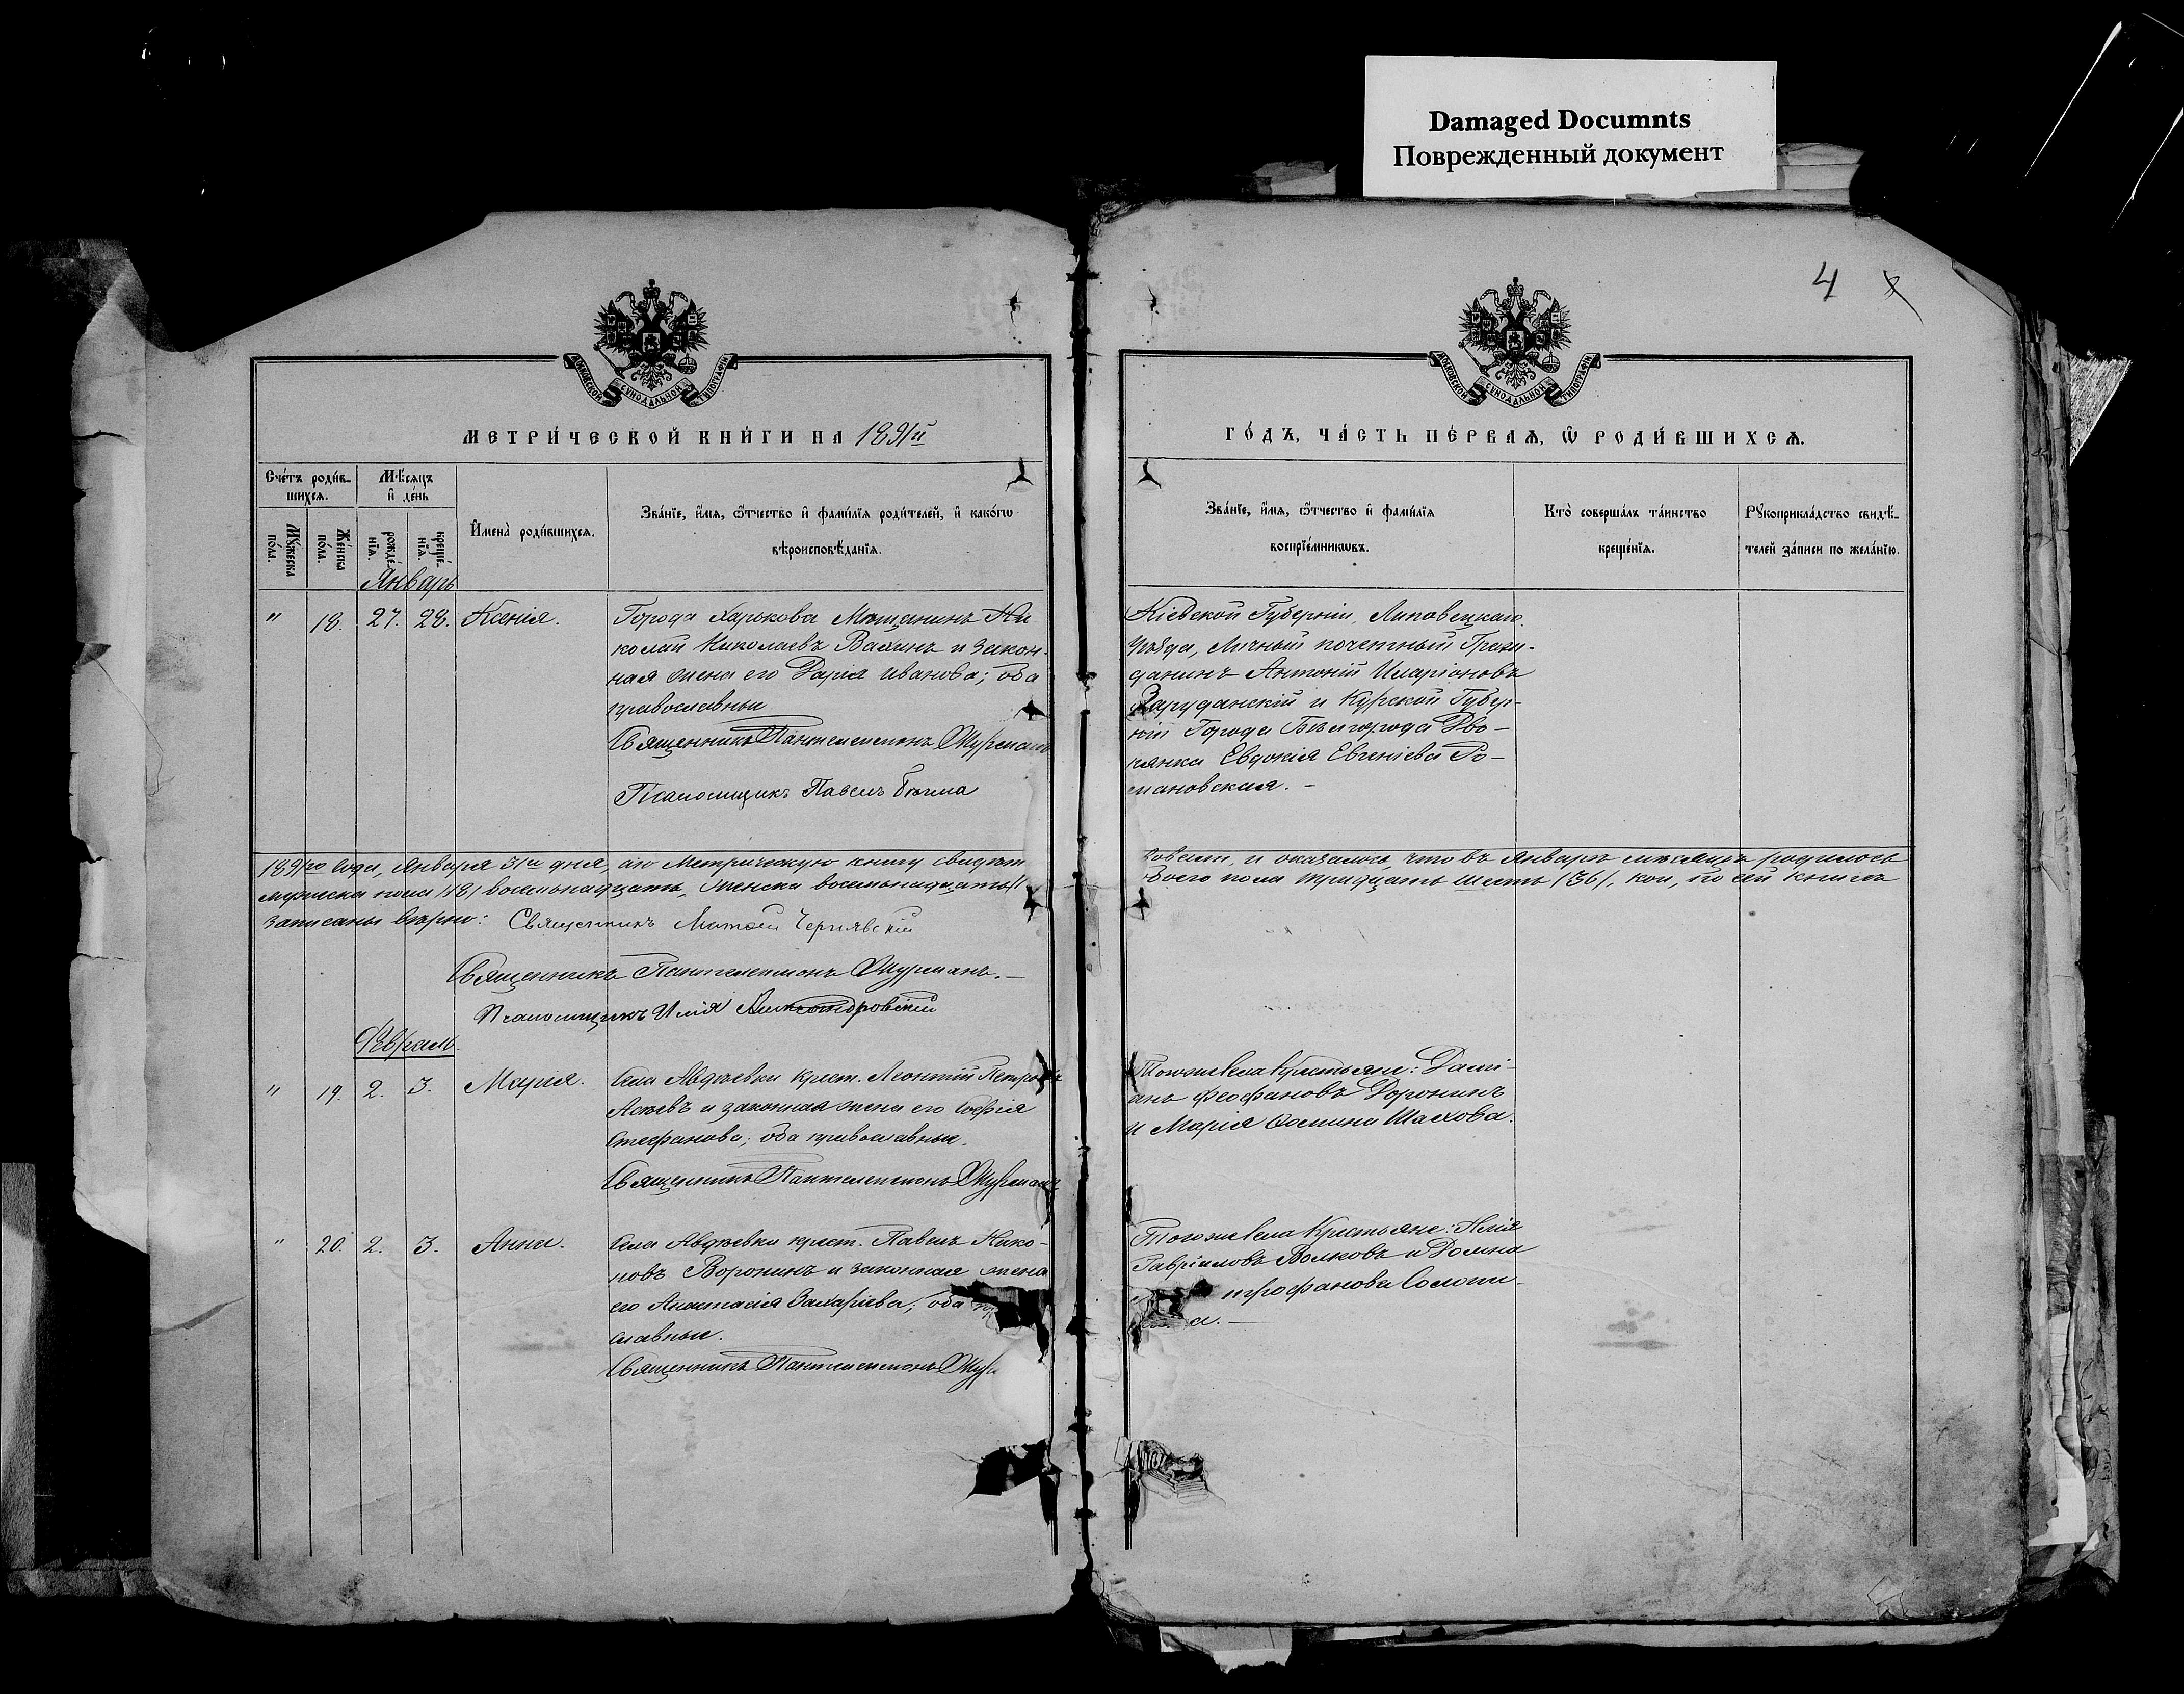 Damaged Documnts
Поврежденный документ
4
МОСКОВСКОЙ СУНОДАЛЬНОЙ ТИПОГРАФІИ
МОСКОВСКОЙ СУНОДАЛЬНОЙ ТИПОГРАФІИ
МЕТРИ́ЧЕСКОЙ КНИ́ГИ НА 1891й
ГО́ДЪ, ЧА́СТЬ ПЕ́РВАЯ, Ѡ РОДИ́ВШИХСѦ.
Сче́тъ роди́в-
шихсѧ.
Мѣ́сяцъ
и҆ де́нь
Мꙋ́жеска
по́ла.
Же́нска
по́ла.
рожде́-
нїѧ.
креще́-
нїѧ.
И҆мена̀ роди́вшихсѧ.
Зва́нїе, и҆́мѧ, ѻ҆́тчество и҆ фами́лїѧ роди́телей, и҆ како́гѡ
вѣроисповѣ́данїѧ.
Зва́нїе, и҆́мѧ, ѻ҆́тчество и҆ фами́лїѧ
воспрїе́мникѡвъ.
Кто̀ соверша́лъ та́инство
креще́нїѧ.
Рꙋкоприкла́дство свидѣ́-
телей за́писи по жела́нїю.
Январь
" 18. 27. 28. Ксенія.
Города Харькова Мѣщанинъ Ни
колай Николаевъ Вахинъ и закон-
ная жена его Дарія Иванова; оба
православные
Священникъ Пантелеимонъ Жуpманъ
Псаломщикъ Павелъ
Кіевской Губерніи, Липовецкаго
Уѣзда, Личный почетный Граж-
данинъ Антоній Иларіоновъ
Заруданскій и Курской Губер-
ніи Города Бѣлгорода Дво-
рянка Евдокія Евгеніева Ро-
мановская. –
1891го Года, Января 31го дня, сію Метрическую книгу свидѣт
ховали, и оказалось, что въ Январѣ мѣсяцѣ родилось
мужеска пола /18/ восемнадцать, женска восемнадцать
обоего пола тридцать шесть /36/, кои, по сей книгѣ
записаны вѣрно: Священникъ Матѳей Чернявскій
Священникъ Пантелеимонъ Журманъ. –
Псаломщикъ Илія
Февраль.
" 19. 2. 3. Марія.
Села Авдѣевки крест. Леонтій Петровъ
Асѣевъ и законная жена его Софія
Стефанова; оба православные.
Священникъ Пантелеимонъ Журманъ
Того же села Крестьяне: Дамі-
анъ Феофановъ Доронинъ
и Марія Фомина Шахова.
" 20. 2. 3. Анна.
Села Авдѣевки крест. Павелъ Нико-
новъ Воронинъ и законная жена
его Анастасія Захаріева; оба пр
славные.
Священникъ Пантелеимонъ Жур
Того же села Крестьяне: Илія
Гавріиловъ Волковъ и Домна
трофанова Соломи-
а. –